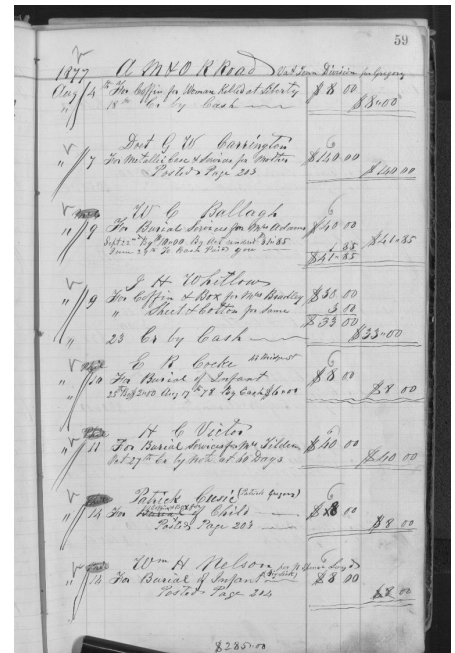 59
1877 A M & O R Road Va & Tenn Division per Gregory
Aug 4th For Coffin for Woman Killed at Liberty $8 00
" 18th Cr by Cash $8-00
Doct G W Carrington
" 7 For Metallic Case & Services for Mother $140.00
Posted Page 203 $140.00
W C Ballagh
" 9 For Burial Services for Mrs Adams $40 00
Sept 22nd By 10-00 By Act 31-85 1 85 $41-85
$41-85
J H Whitlow
" 9 For Coffin & Box for Mrs Bradley $30.00
" Sheet & Cotton for Same 3 00
$33 00
" 23 Cr by Cash $33-00
E R Cocke
" 10 For Burial of Infant $8 00
25th By $2.00 Aug 17th 78 By Cash $6.00 $8 00
H C Victor
" 11 For Burial Services for Mrs Tilden $40 00
Oct 27th Cr by Note at 60 Days $40 00
Patrick Cusic (Patrick Gregory)
" 14 For Burial of Child $8 00
Posted Page 203 $8 00
Wm H Nelson
" 14 For Burial of Infant $8 00
Posted Page 204 $8 00
$285.00